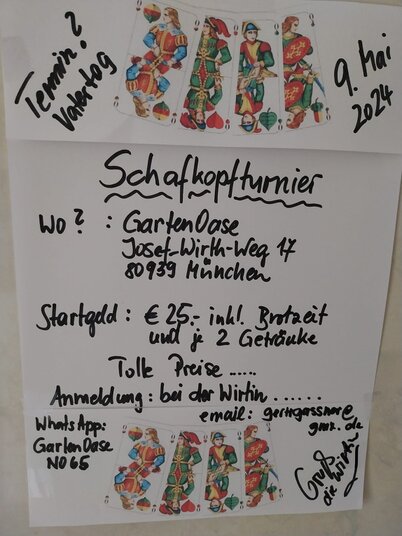 Termin?
Vatertag
9. Mai
2024
Schafkopfturnier
Wo? : GartenOase
Josef-Wirth-Weg 17
80939 München
Startgeld : € 25.- inkl. Brotzeit
und je 2 Getränke
Tolle Preise .....
Anmeldung : bei der Wirtin ......
email:
WhatsApp:
GartenOase
NO65
Gruß
die Wirtin